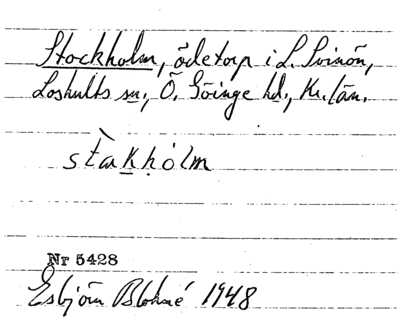 Stockholm, ödetorp i L. Svinön,
Loshults sn., Ö. Göinge hd., Kr. län.
stàkḥólm
Nr 5428
Esbjörn Blohmé 1948